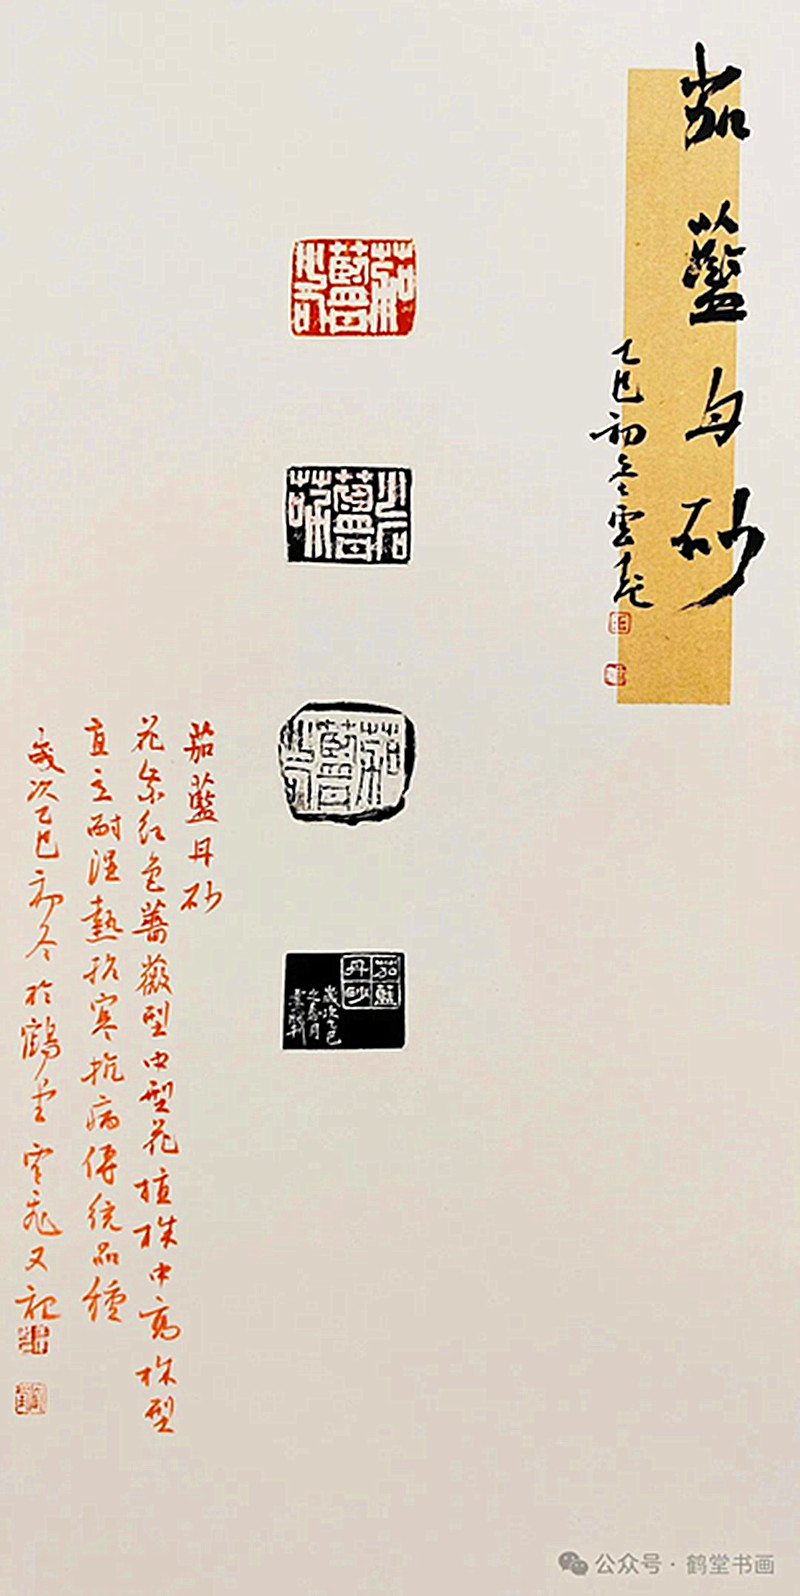 茄藍丹砂
乙巳初冬雲飛
茄藍丹砂
茄藍丹砂
歲次乙巳
茄藍丹砂
花紫紅色薔薇型中型花植株中高株型
直立耐濕熱抗寒抗病傳統品種
歲次乙巳初冬於鶴堂雲飛又記
公众号·鹤堂书画